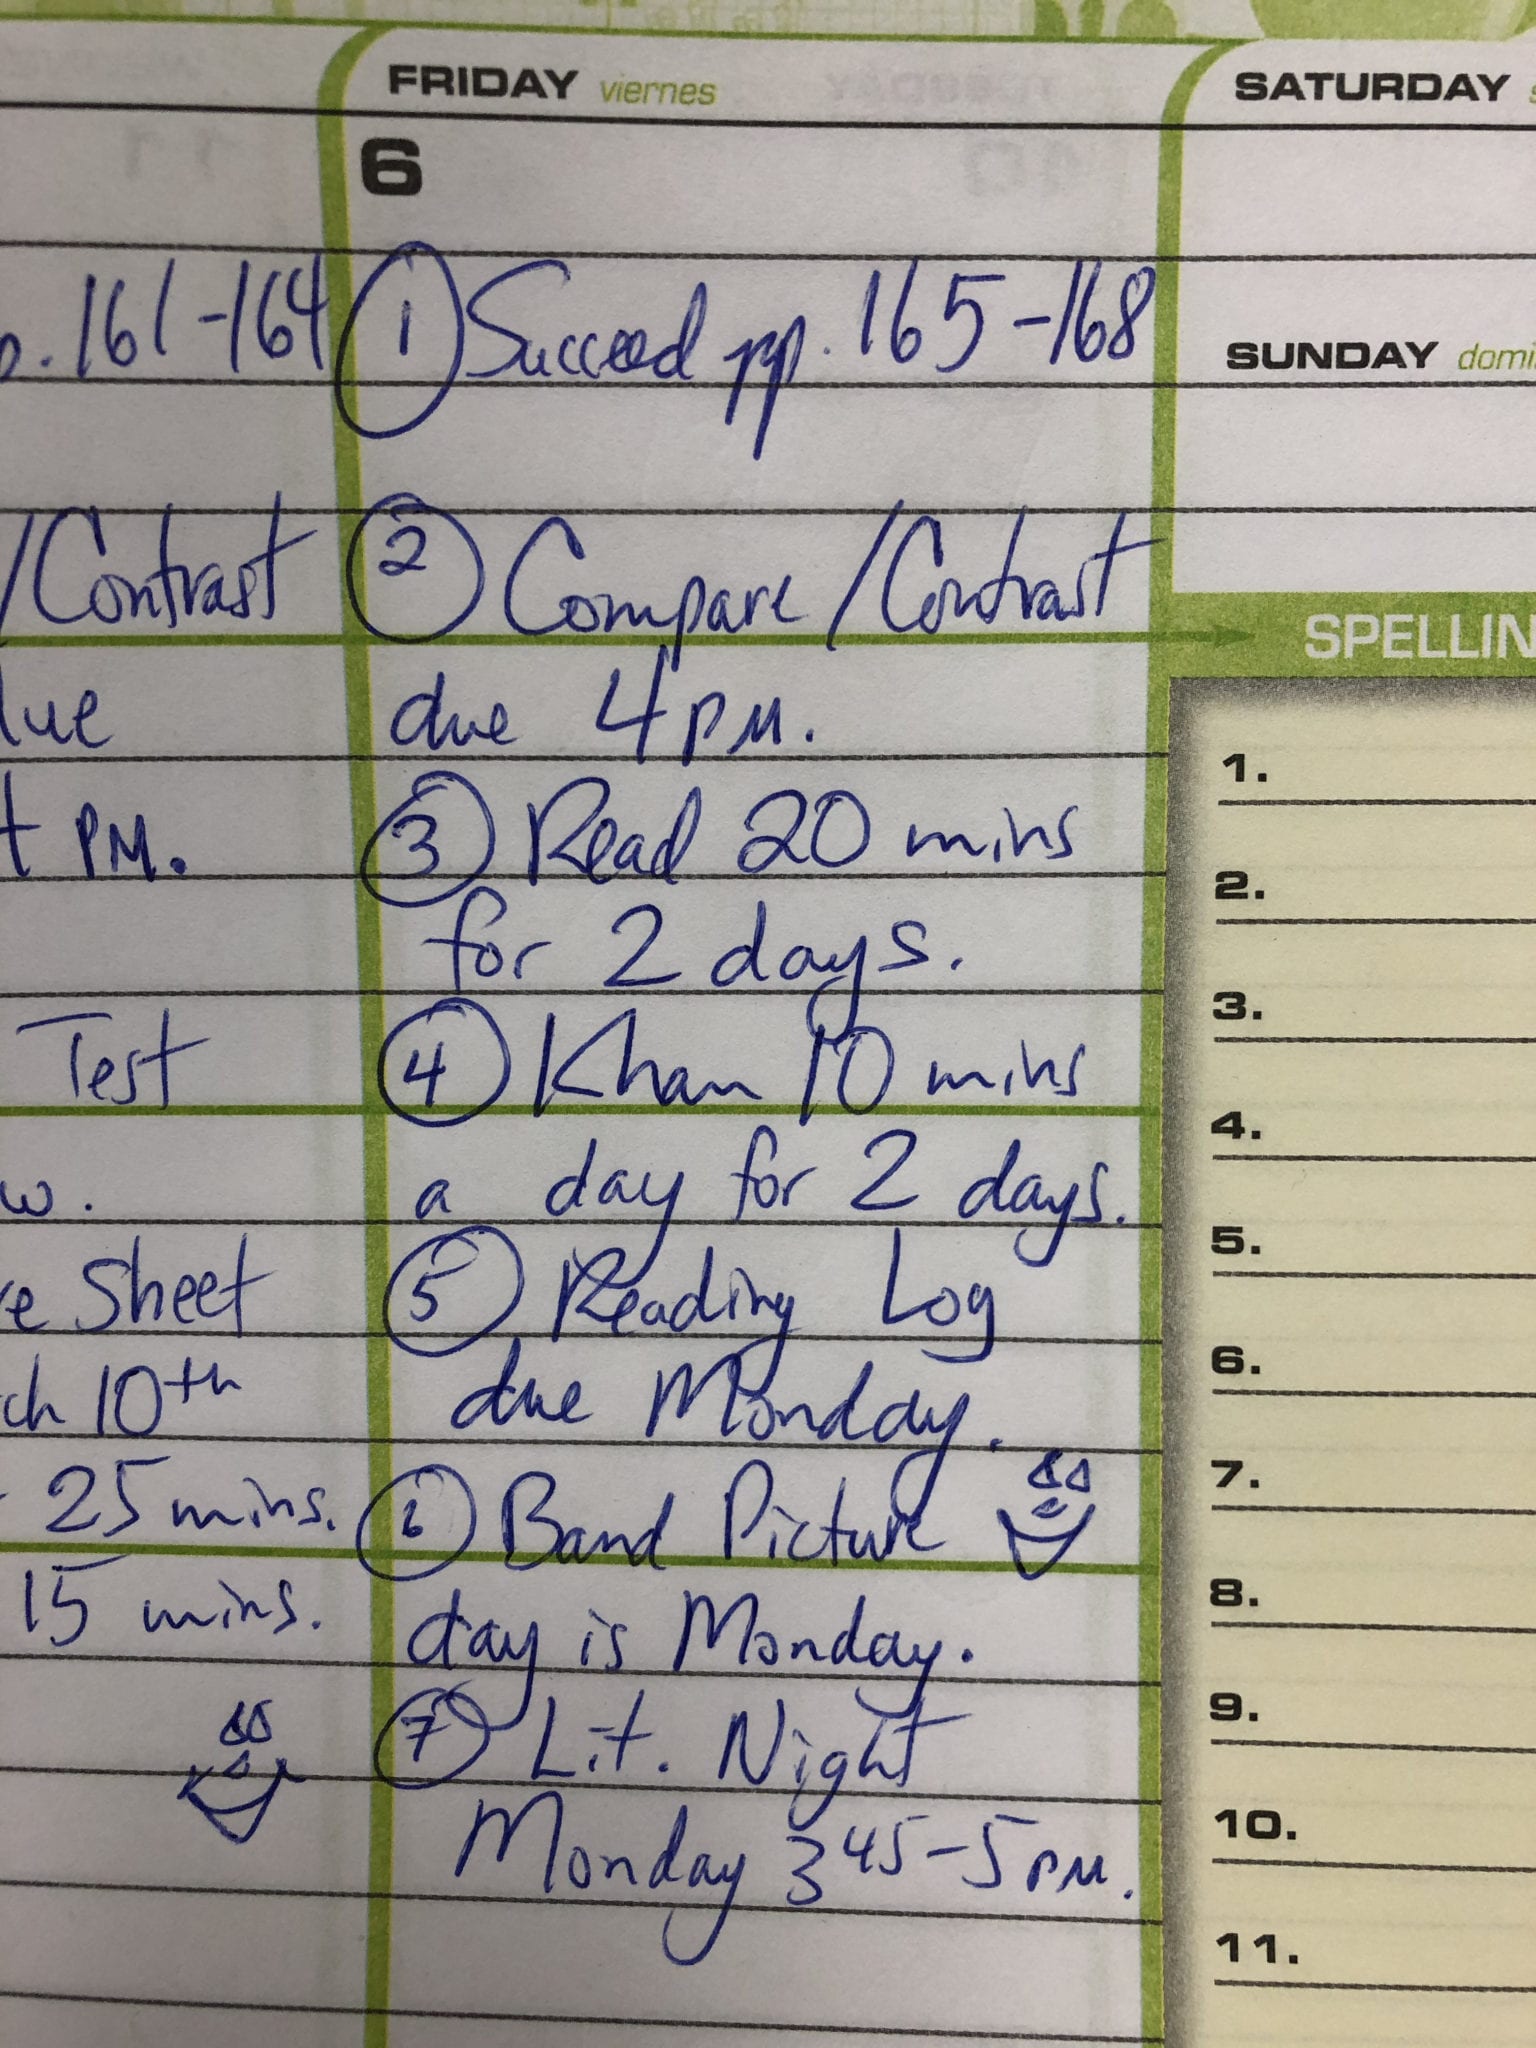 FRIDAY viernes
6
① Succeed pp. 165-168
② Compare/Contrast
due 4 PM.
③ Read 20 mins
for 2 days.
④ Khan 10 mins
a day for 2 days.
⑤ Reading Log
due Monday.
⑥ Band Picture
day is Monday.
⑦ Lit. Night
Monday 3 45-5 PM.
. 161-164
/Contrast
PM.
Test
w.
Sheet
10th
25 mins.
15 mins.
SATURDAY
SUNDAY
1.
2.
3.
4.
5.
6.
7.
8.
9.
10.
11.